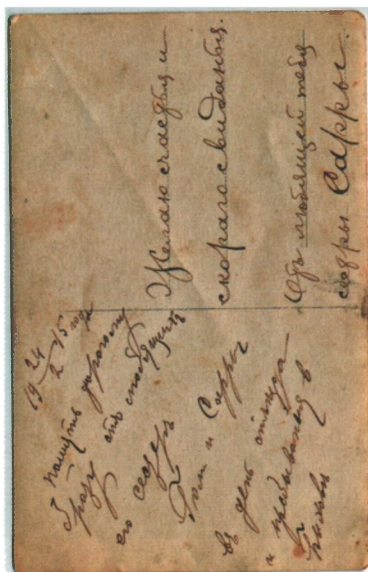 19 24/2 15 года
На память дорогому
брату отъ любящихъ
его сестеръ
и Сарры
въ день отъѣзда
и
Желаю счастья и
скораго свиданья.
Отъ любящей тебя
сестры Сарры.